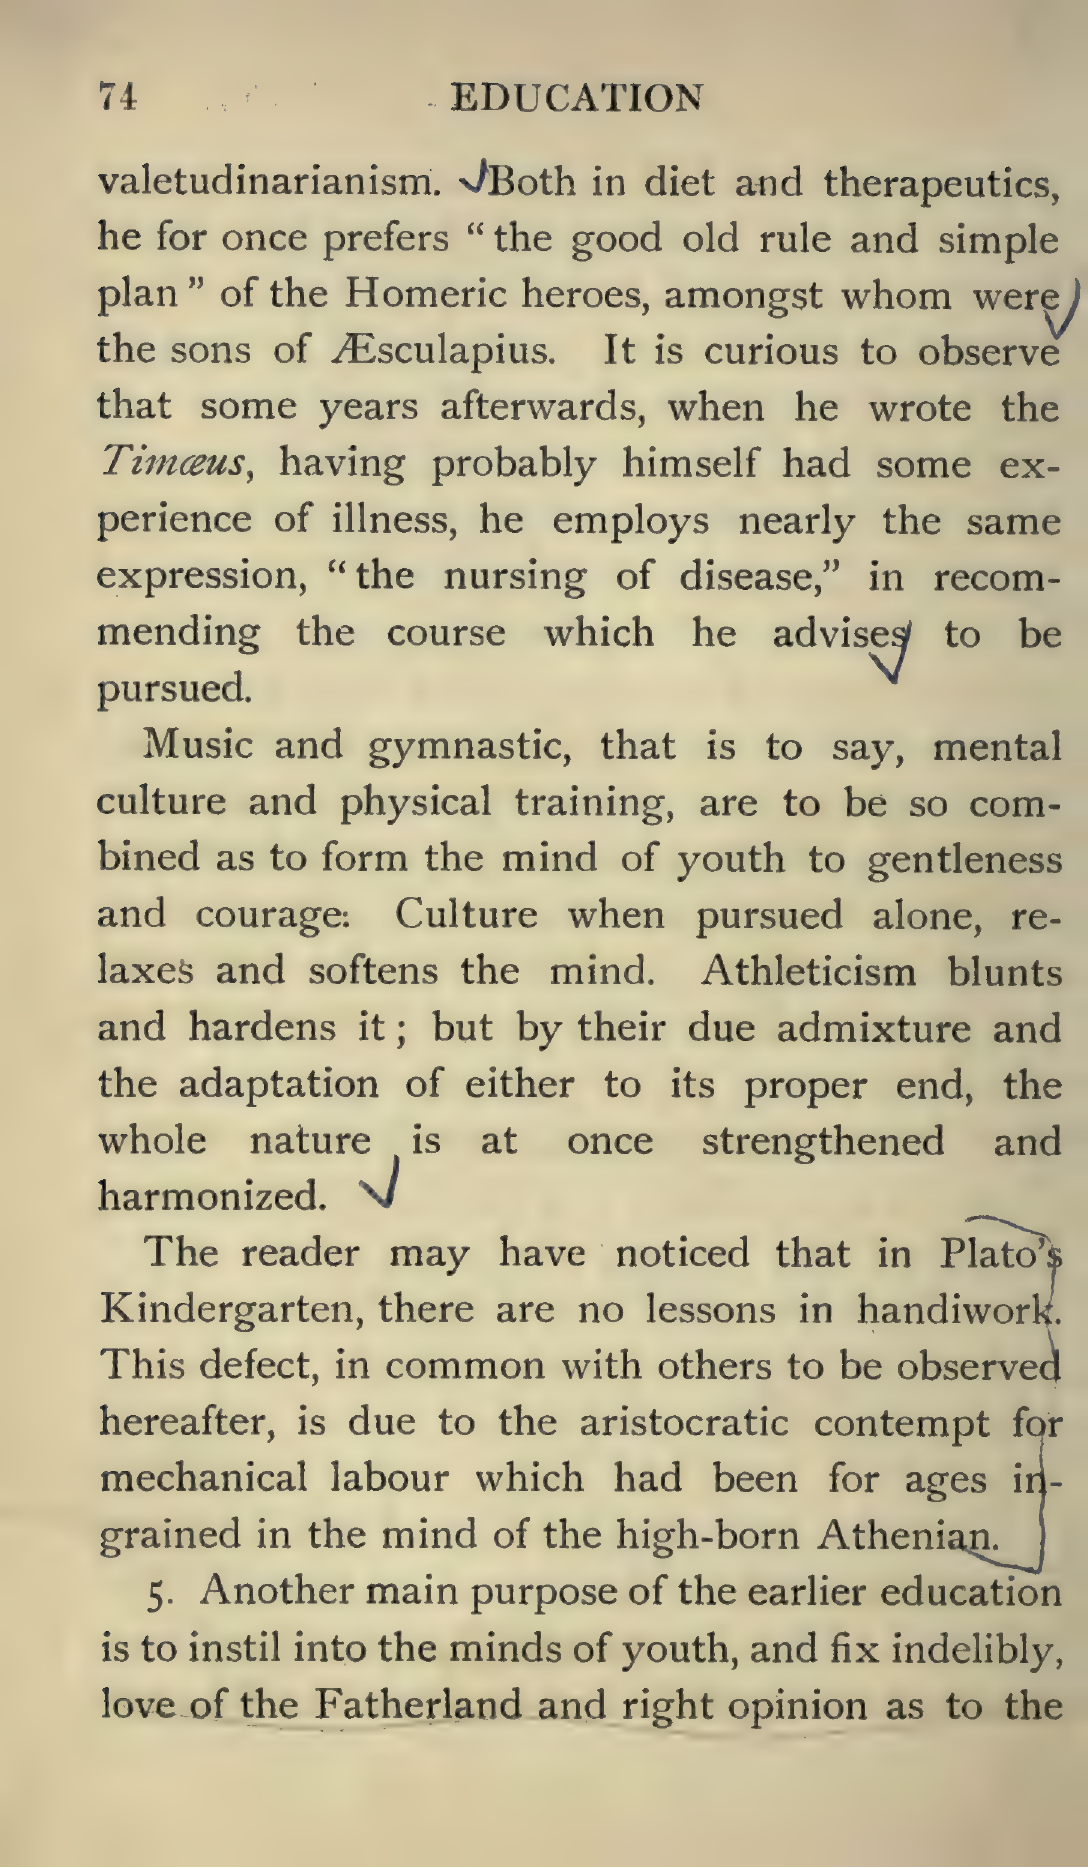 74 EDUCATION
valetudinarianism. Both in diet and therapeutics,
he for once prefers “the good old rule and simple
plan” of the Homeric heroes, amongst whom were
the sons of Æsculapius. It is curious to observe
that some years afterwards, when he wrote the
Timæus, having probably himself had some ex-
perience of illness, he employs nearly the same
expression, “the nursing of disease,” in recom-
mending the course which he advises to be
pursued.
Music and gymnastic, that is to say, mental
culture and physical training, are to be so com-
bined as to form the mind of youth to gentleness
and courage: Culture when pursued alone, re-
laxes and softens the mind. Athleticism blunts
and hardens it; but by their due admixture and
the adaptation of either to its proper end, the
whole nature is at once strengthened and
harmonized.
The reader may have noticed that in Plato’s
Kindergarten, there are no lessons in handiwork.
This defect, in common with others to be observed
hereafter, is due to the aristocratic contempt for
mechanical labour which had been for ages in-
grained in the mind of the high-born Athenian.
5. Another main purpose of the earlier education
is to instil into the minds of youth, and fix indelibly,
love of the Fatherland and right opinion as to the